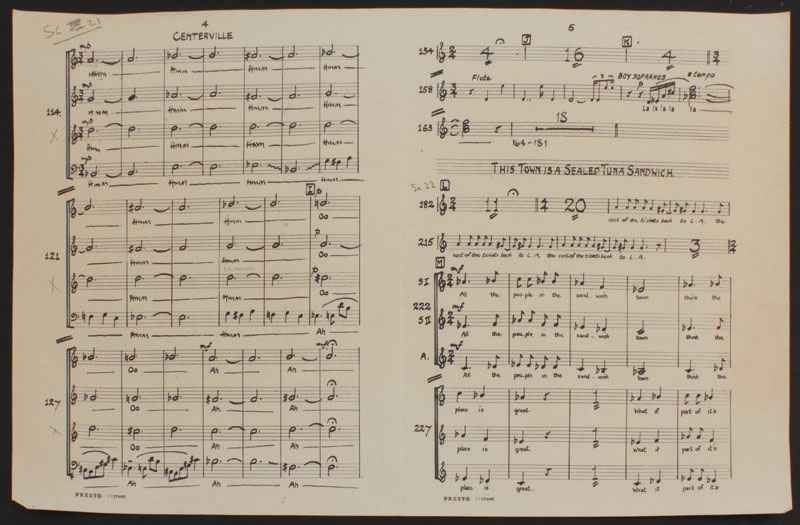 Sc 21
4
CENTERVILLE
mp
Hmm Hmm Hmm Hmm
mp
Hmm Hmm Hmm Hmm
114
mp
Hmm Hmm Hmm Hmm
mp
Hmm Hmm Hmm Hmm
I
p
Hmm Hmm Oo
p
121
Hmm Hmm Oo
p
Hmm Hmm Oo
Hmm Hmm Ah
mf mf
Oo Ah Ah
127
Oo Ah Ah
Oo Ah Ah
Ah Ah Ah
PRESTO
5
134 4 J 16 K 4
158 Flute BOY SOPRANOS a tempo
3 3
La la la la la
163 18
164-181
THIS TOWN IS A SEALED TUNA SANDWICH
Sc 22
L
182 11 20
cost of the tickets back to L.A, the
215 3
cost of the tickets back to L.A, the cost of the tickets back to L.A.
M
mf
S I
All the peo-ple in the sand-wich town think the
222
mf
S II
All the peo-ple in the sand-wich town think the
mf
A.
All the peo-ple in the sand-wich town think the
1
place is great. What if part of it's
227 1
place is great. What if part of it's
1
place is great. What if part of it's
PRESTO